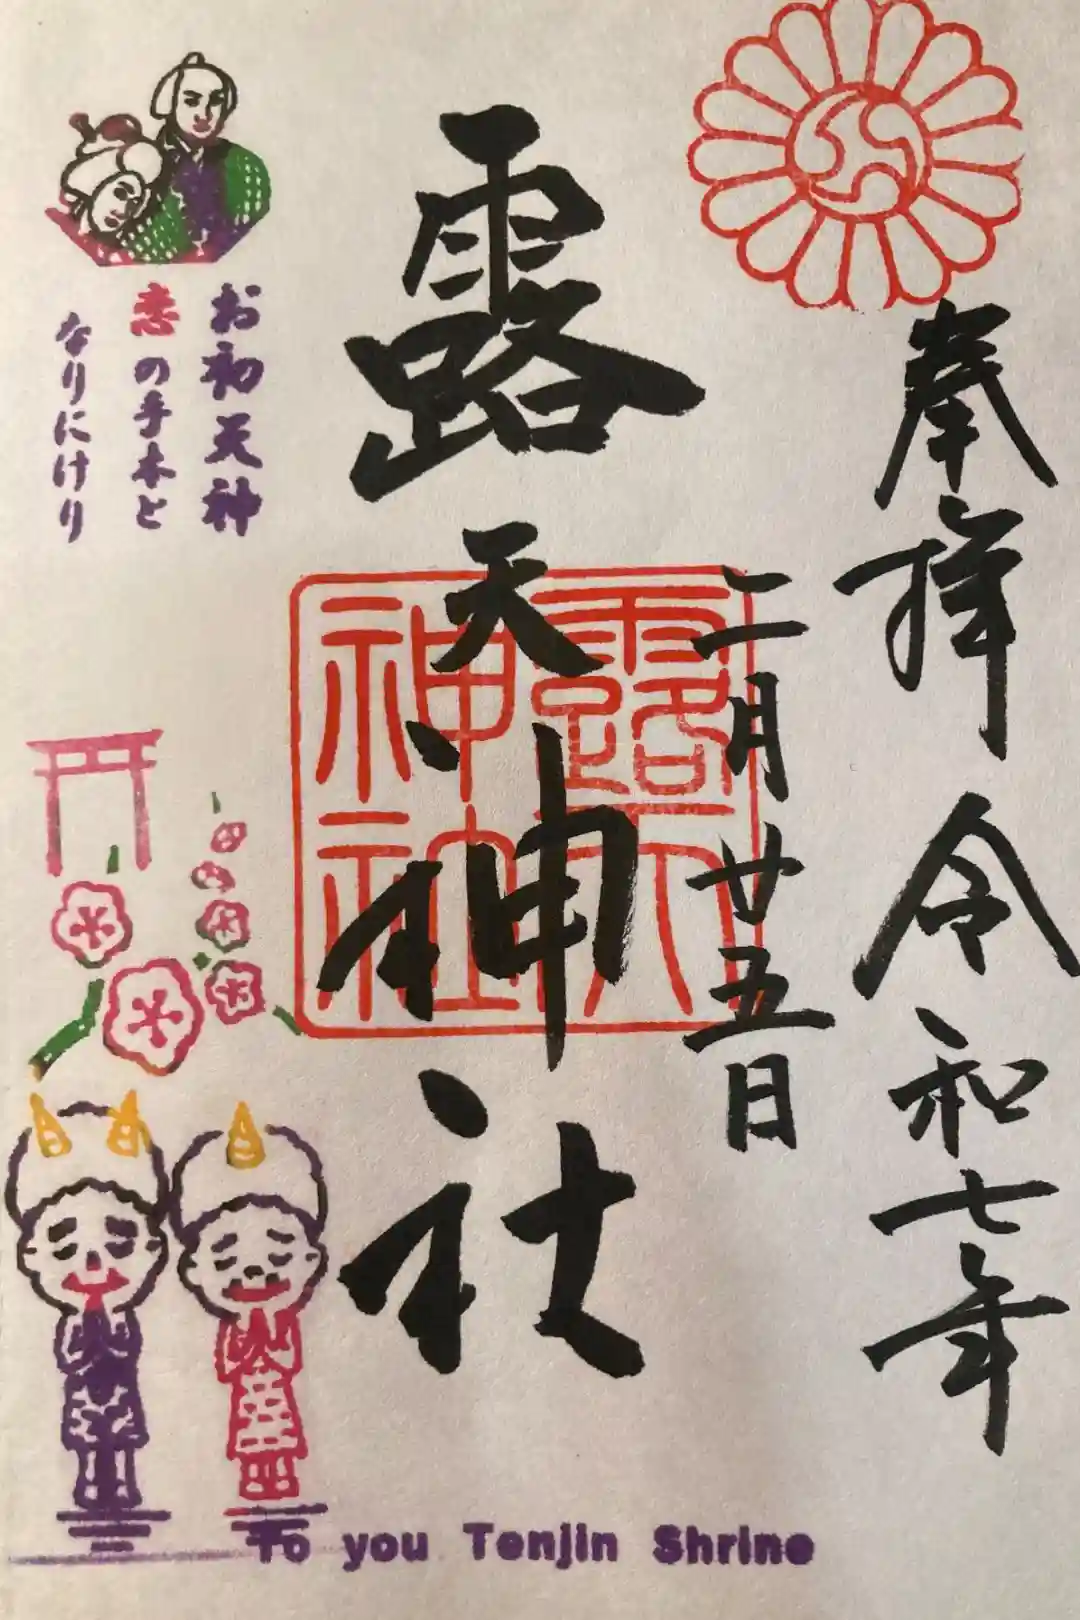 奉拝 令和七年
二月廿五日
露天神社
露天
神社
お初天神
恋の手本と
なりにけり
To you Tenjin Shrine